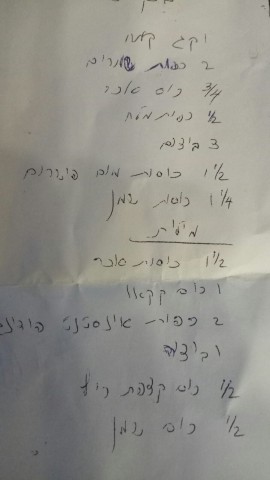 1 קג קמח
2 כפות שמרים
3/4 כוס סוכר
1/2 כפית מלח
3 ביצים
1 1/2 כוסות מים פושרים
1 1/4 כוסות שמן
מילוי
1 1/2 כוסות סוכר
1 כוס קקאו
2 כפות אינסטנט פודינג
1 ביצה
1/2 כוס קצפת ריץ
1/2 כוס שמן